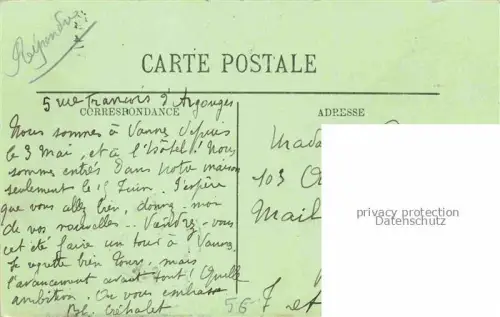 Répondu
CARTE POSTALE
5 rue François d'Argouges
CORRESPONDANCE
ADRESSE
Nous sommes à Vannes depuis
le 3 Mai, et à l'hôtel! Nous
sommes entrés dans notre maison
seulement le 15 Juin. J'espère
que vous allez bien, donnez-moi
de vos nouvelles. Viendrez-vous
cet été faire un tour à Vannes.
Je regrette bien Tours, mais
l'avancement avant tout! Quelle
ambition. On vous embrasse
Mada
103
Mail
56 7 et
privacy protection
Datenschutz